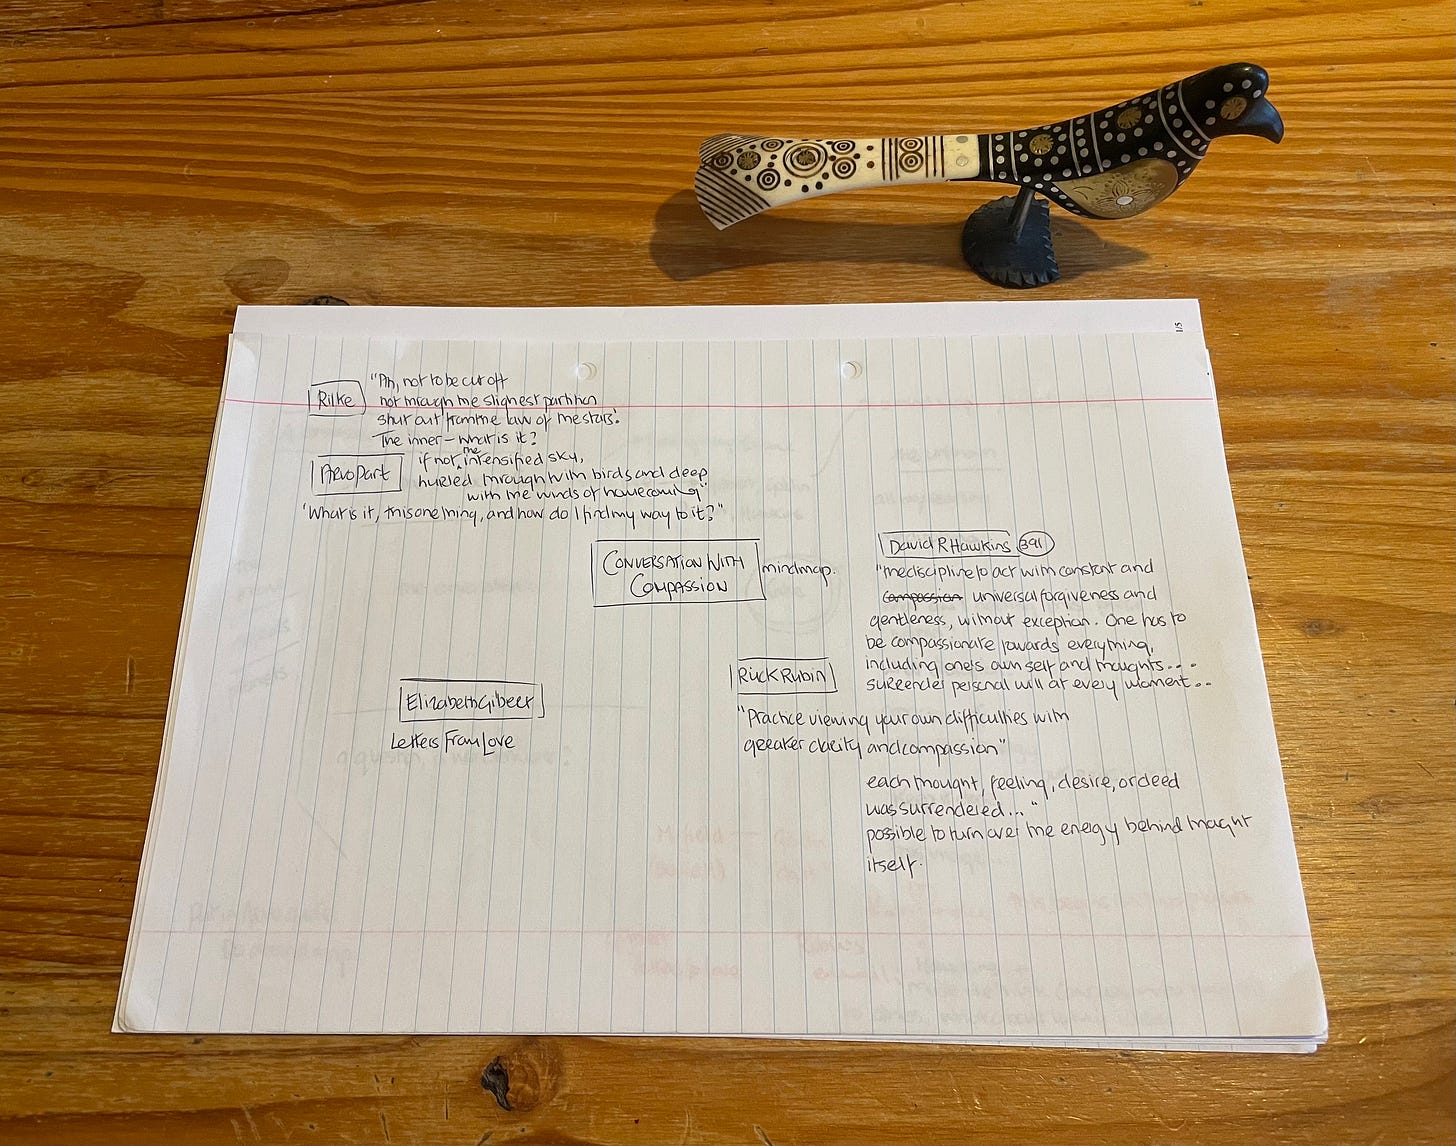 1/5
Rilke
"Ah, not to be cut off
not through the slightest partition
shut out from the law of the stars.
The inner – what is it?
if not the intensified sky,
hurled through with birds and deep
with the winds of homecoming"
Arvo Part
'What is it, this one thing, and how do I find my way to it?"
CONVERSATION WITH
COMPASSION
mindmap.
David R Hawkins 391
"the discipline to act with constant and
compassion universal forgiveness and
gentleness, without exception. One has to
be compassionate towards everything,
including one's own self and thoughts....
surrender personal will at every moment...
Rick Rubin
"Practice viewing your own difficulties with
greater clarity and compassion"
Elizabeth Gilbert
Letters From Love
each thought, feeling, desire, or deed
was surrendered..."
possible to turn over the energy behind thought
itself.